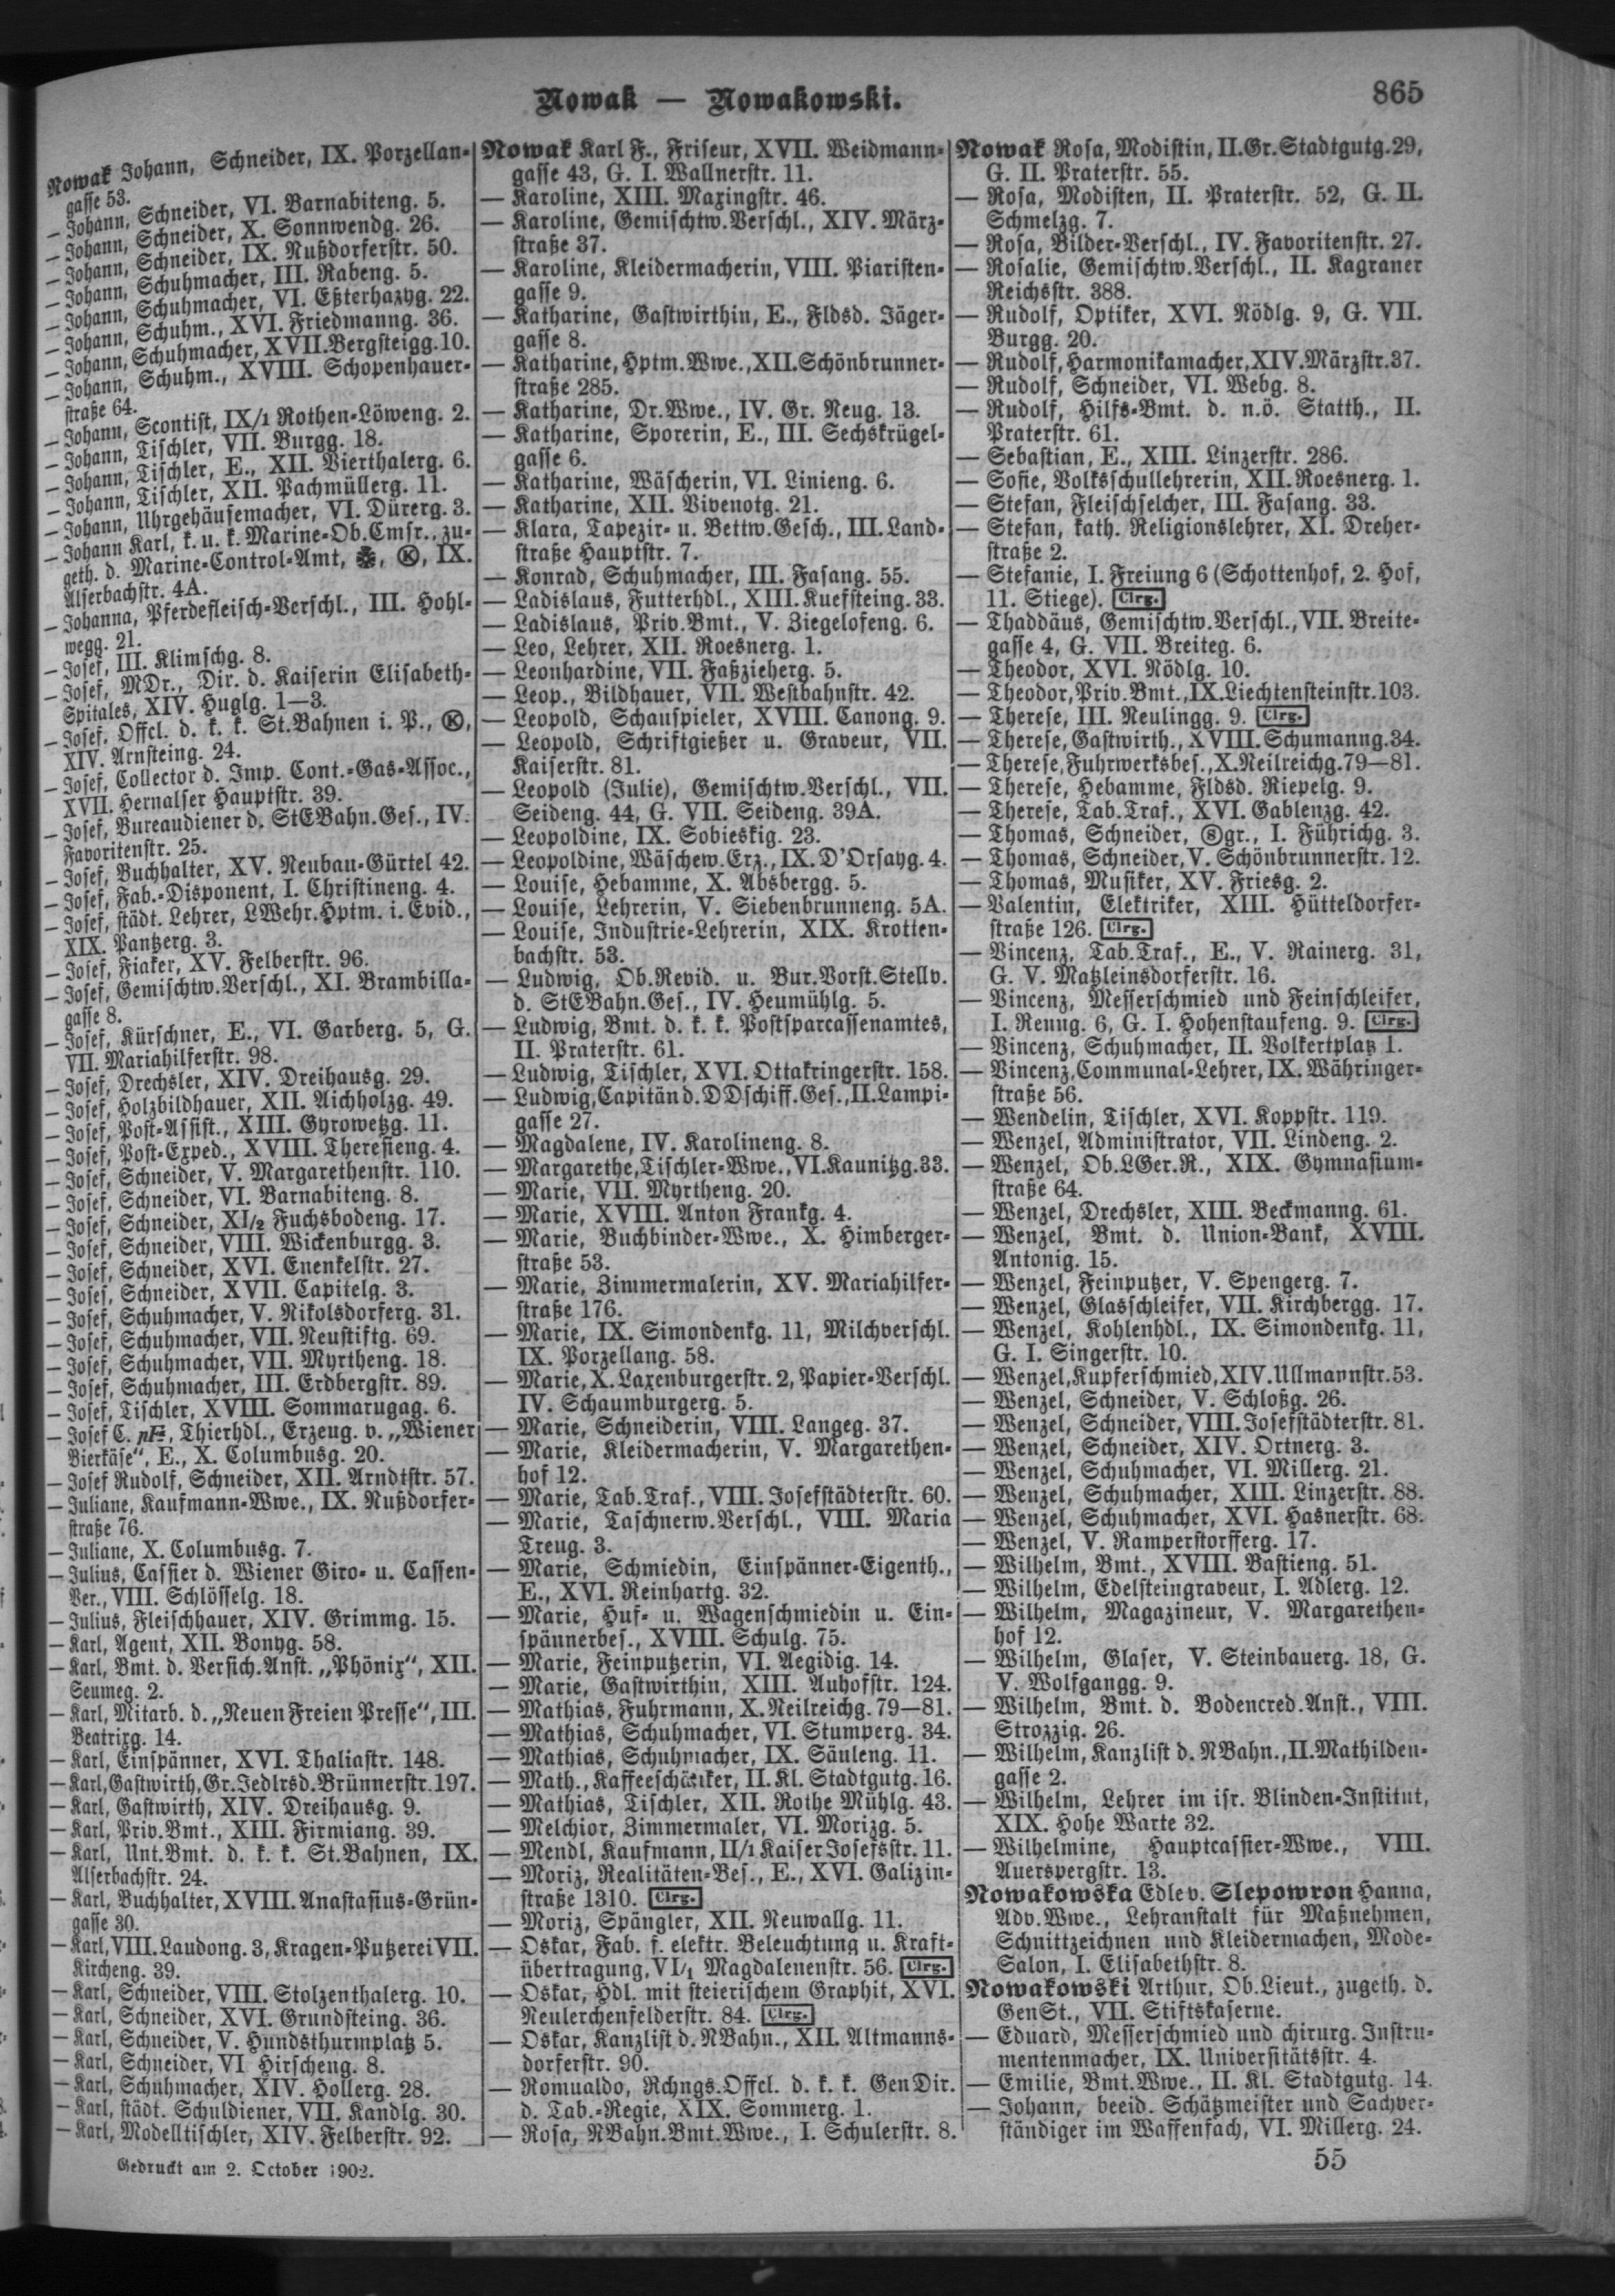 Nowak — Nowakowski.
865
Nowak Johann, Schneider, IX. Porzellan-
gasse 53.
— Johann, Schneider, VI. Barnabiteng. 5.
— Johann, Schneider, X. Sonnwendg. 26.
— Johann, Schneider, IX. Nußdorferstr. 50.
— Johann, Schuhmacher, III. Rabeng. 5.
— Johann, Schuhmacher, VI. Eßterhazyg. 22.
— Johann, Schuhm., XVI. Friedmanng. 36.
— Johann, Schuhmacher, XVII. Bergsteigg. 10.
— Johann, Schuhm., XVIII. Schopenhauer-
straße 64.
— Johann, Scontist, IX/1 Rothen-Löweng. 2.
— Johann, Tischler, VII. Burgg. 18.
— Johann, Tischler, E., XII. Vierthalerg. 6.
— Johann, Tischler, XII. Pachmüllerg. 11.
— Johann, Uhrgehäusemacher, VI. Dürerg. 3.
— Johann Karl, k. u. k. Marine-Ob.Cmsr., zu-
geth. d. Marine-Control-Amt, Ⓚ, IX.
Alserbachstr. 4A.
— Johanna, Pferdefleisch-Verschl., III. Hohl-
wegg. 21.
— Josef, III. Klimschg. 8.
— Josef, MDr., Dir. d. Kaiserin Elisabeth-
Spitales, XIV. Huglg. 1—3.
— Josef, Offcl. d. k. k. St.Bahnen i. P., Ⓚ,
XIV. Arnsteing. 24.
— Josef, Collector d. Imp. Cont.-Gas-Assoc.,
XVII. Hernalser Hauptstr. 39.
— Josef, Bureaudiener d. StEBahn.Ges., IV.
Favoritenstr. 25.
— Josef, Buchhalter, XV. Neubau-Gürtel 42.
— Josef, Fab.-Disponent, I. Christineng. 4.
— Josef, städt. Lehrer, LWehr.Hptm. i. Evid.,
XIX. Pantzerg. 3.
— Josef, Fiaker, XV. Felberstr. 96.
— Josef, Gemischtw.Verschl., XI. Brambilla-
gasse 8.
— Josef, Kürschner, E., VI. Garberg. 5, G.
VII. Mariahilferstr. 98.
— Josef, Drechsler, XIV. Dreihausg. 29.
— Josef, Holzbildhauer, XII. Aichholzg. 49.
— Josef, Post-Assist., XIII. Gyrowetzg. 11.
— Josef, Post-Exped., XVIII. Theresieng. 4.
— Josef, Schneider, V. Margarethenstr. 110.
— Josef, Schneider, VI. Barnabiteng. 8.
— Josef, Schneider, XI/2 Fuchsbodeng. 17.
— Josef, Schneider, VIII. Wickenburgg. 3.
— Josef, Schneider, XVI. Enenkelstr. 27.
— Josef, Schneider, XVII. Capitelg. 3.
— Josef, Schuhmacher, V. Nikolsdorferg. 31.
— Josef, Schuhmacher, VII. Neustiftg. 69.
— Josef, Schuhmacher, VII. Myrtheng. 18.
— Josef, Schuhmacher, III. Erdbergstr. 89.
— Josef, Tischler, XVIII. Sommarugag. 6.
— Josef C. Thierhdl., Erzeug. v. „Wiener
Bierkäse“, E., X. Columbusg. 20.
— Josef Rudolf, Schneider, XII. Arndtstr. 57.
— Juliane, Kaufmann-Wwe., IX. Nußdorfer-
straße 76.
— Juliane, X. Columbusg. 7.
— Julius, Cassier d. Wiener Giro- u. Cassen-
Ver., VIII. Schlösselg. 18.
— Julius, Fleischhauer, XIV. Grimmg. 15.
— Karl, Agent, XII. Bonyg. 58.
— Karl, Bmt. d. Versich.Anst. „Phönix“, XII.
Seumeg. 2.
— Karl, Mitarb. d. „Neuen Freien Presse“, III.
Beatrixg. 14.
— Karl, Einspänner, XVI. Thaliastr. 148.
— Karl, Gastwirth, Gr.Jedlrsd. Brünnerstr. 197.
— Karl, Gastwirth, XIV. Dreihausg. 9.
— Karl, Priv.Bmt., XIII. Firmiang. 39.
— Karl, Unt.Bmt. d. k. k. St.Bahnen, IX.
Alserbachstr. 24.
— Karl, Buchhalter, XVIII. Anastasius-Grün-
gasse 30.
— Karl, VIII. Laudong. 3, Kragen-Putzerei VII.
Kircheng. 39.
— Karl, Schneider, VIII. Stolzenthalerg. 10.
— Karl, Schneider, XVI. Grundsteing. 36.
— Karl, Schneider, V. Hundsthurmplatz 5.
— Karl, Schneider, VI Hirscheng. 8.
— Karl, Schuhmacher, XIV. Hollerg. 28.
— Karl, städt. Schuldiener, VII. Kandlg. 30.
— Karl, Modelltischler, XIV. Felberstr. 92.
Gedruckt am 2. October 1902.
Nowak Karl F., Friseur, XVII. Weidmann-
gasse 43, G. I. Wallnerstr. 11.
— Karoline, XIII. Maxingstr. 46.
— Karoline, Gemischtw.Verschl., XIV. März-
straße 37.
— Karoline, Kleidermacherin, VIII. Piaristen-
gasse 9.
— Katharine, Gastwirthin, E., Fldsd. Jäger-
gasse 8.
— Katharine, Hptm.Wwe., XII. Schönbrunner-
straße 285.
— Katharine, Dr.Wwe., IV. Gr. Neug. 13.
— Katharine, Sporerin, E., III. Sechskrügel-
gasse 6.
— Katharine, Wäscherin, VI. Linieng. 6.
— Katharine, XII. Vivenotg. 21.
— Klara, Tapezir- u. Bettw.Gesch., III. Land-
straße Hauptstr. 7.
— Konrad, Schuhmacher, III. Fasang. 55.
— Ladislaus, Futterhdl., XIII. Kuefsteing. 33.
— Ladislaus, Priv.Bmt., V. Ziegelofeng. 6.
— Leo, Lehrer, XII. Roesnerg. 1.
— Leonhardine, VII. Faßzieherg. 5.
— Leop., Bildhauer, VII. Westbahnstr. 42.
— Leopold, Schauspieler, XVIII. Canong. 9.
— Leopold, Schriftgießer u. Graveur, VII.
Kaiserstr. 81.
— Leopold (Julie), Gemischtw.Verschl., VII.
Seideng. 44, G. VII. Seideng. 39A.
— Leopoldine, IX. Sobieskig. 23.
— Leopoldine, Wäschew.Erz., IX. D'Orsayg. 4.
— Louise, Hebamme, X. Absbergg. 5.
— Louise, Lehrerin, V. Siebenbrunneng. 5A.
— Louise, Industrie-Lehrerin, XIX. Krotten-
bachstr. 53.
— Ludwig, Ob.Revid. u. Bur.Vorst.Stellv.
d. StEBahn.Ges., IV. Heumühlg. 5.
— Ludwig, Bmt. d. k. k. Postsparcassenamtes,
II. Praterstr. 61.
— Ludwig, Tischler, XVI. Ottakringerstr. 158.
— Ludwig, Capitän d. DDschiff.Ges., II. Lampi-
gasse 27.
— Magdalene, IV. Karolineng. 8.
— Margarethe, Tischler-Wwe., VI. Kaunitzg. 33.
— Marie, VII. Myrtheng. 20.
— Marie, XVIII. Anton Frankg. 4.
— Marie, Buchbinder-Wwe., X. Himberger-
straße 53.
— Marie, Zimmermalerin, XV. Mariahilfer-
straße 176.
— Marie, IX. Simondenkg. 11, Milchverschl.
IX. Porzellang. 58.
— Marie, X. Laxenburgerstr. 2, Papier-Verschl.
IV. Schaumburgerg. 5.
— Marie, Schneiderin, VIII. Langeg. 37.
— Marie, Kleidermacherin, V. Margarethen-
hof 12.
— Marie, Tab.Traf., VIII. Josefstädterstr. 60.
— Marie, Taschnerw.Verschl., VIII. Maria
Treug. 3.
— Marie, Schmiedin, Einspänner-Eigenth.,
E., XVI. Reinhartg. 32.
— Marie, Huf- u. Wagenschmiedin u. Ein-
spännerbes., XVIII. Schulg. 75.
— Marie, Feinputzerin, VI. Aegidig. 14.
— Marie, Gastwirthin, XIII. Auhofstr. 124.
— Mathias, Fuhrmann, X. Neilreichg. 79—81.
— Mathias, Schuhmacher, VI. Stumperg. 34.
— Mathias, Schuhmacher, IX. Säuleng. 11.
— Math., Kaffeeschänker, II. Kl. Stadtgutg. 16.
— Mathias, Tischler, XII. Rothe Mühlg. 43.
— Melchior, Zimmermaler, VI. Morizg. 5.
— Mendl, Kaufmann, II/1 Kaiser Josefsstr. 11.
— Moriz, Realitäten-Bes., E., XVI. Galizin-
straße 1310. Clrg.
— Moriz, Spängler, XII. Neuwallg. 11.
— Oskar, Fab. f. elektr. Beleuchtung u. Kraft-
übertragung, VI/1 Magdalenenstr. 56. Clrg.
— Oskar, Hdl. mit steierischem Graphit, XVI.
Neulerchenfelderstr. 84. Clrg.
— Oskar, Kanzlist d. NBahn., XII. Altmanns-
dorferstr. 90.
— Romualdo, Rchngs.Offcl. d. k. k. GenDir.
d. Tab.-Regie, XIX. Sommerg. 1.
— Rosa, NBahn.Bmt.Wwe., I. Schulerstr. 8.
Nowak Rosa, Modistin, II. Gr. Stadtgutg. 29,
G. II. Praterstr. 55.
— Rosa, Modisten, II. Praterstr. 52, G. II.
Schmelzg. 7.
— Rosa, Bilder-Verschl., IV. Favoritenstr. 27.
— Rosalie, Gemischtw.Verschl., II. Kagraner
Reichsstr. 388.
— Rudolf, Optiker, XVI. Nödlg. 9, G. VII.
Burgg. 20.
— Rudolf, Harmonikamacher, XIV. Märzstr. 37.
— Rudolf, Schneider, VI. Webg. 8.
— Rudolf, Hilfs-Bmt. d. n.ö. Statth., II.
Praterstr. 61.
— Sebastian, E., XIII. Linzerstr. 286.
— Sofie, Volksschullehrerin, XII. Roesnerg. 1.
— Stefan, Fleischselcher, III. Fasang. 33.
— Stefan, kath. Religionslehrer, XI. Dreher-
straße 2.
— Stefanie, I. Freiung 6 (Schottenhof, 2. Hof,
11. Stiege). Clrg.
— Thaddäus, Gemischtw.Verschl., VII. Breite-
gasse 4, G. VII. Breiteg. 6.
— Theodor, XVI. Nödlg. 10.
— Theodor, Priv.Bmt., IX. Liechtensteinstr. 103.
— Therese, III. Neulingg. 9. Clrg.
— Therese, Gastwirth., XVIII. Schumanng. 34.
— Therese, Fuhrwerksbes., X. Neilreichg. 79—81.
— Therese, Hebamme, Fldsd. Riepelg. 9.
— Therese, Tab.Traf., XVI. Gablenzg. 42.
— Thomas, Schneider, Ⓢgr., I. Führichg. 3.
— Thomas, Schneider, V. Schönbrunnerstr. 12.
— Thomas, Musiker, XV. Friesg. 2.
— Valentin, Elektriker, XIII. Hütteldorfer-
straße 126. Clrg.
— Vincenz, Tab.Traf., E., V. Rainerg. 31,
G. V. Matzleinsdorferstr. 16.
— Vincenz, Messerschmied und Feinschleifer,
I. Renng. 6, G. I. Hohenstaufeng. 9. Clrg.
— Vincenz, Schuhmacher, II. Volkertplatz 1.
— Vincenz, Communal-Lehrer, IX. Währinger-
straße 56.
— Wendelin, Tischler, XVI. Koppstr. 119.
— Wenzel, Administrator, VII. Lindeng. 2.
— Wenzel, Ob.LGer.R., XIX. Gymnasium-
straße 64.
— Wenzel, Drechsler, XIII. Beckmanng. 61.
— Wenzel, Bmt. d. Union-Bank, XVIII.
Antonig. 15.
— Wenzel, Feinputzer, V. Spengerg. 7.
— Wenzel, Glasschleifer, VII. Kirchbergg. 17.
— Wenzel, Kohlenhdl., IX. Simondenkg. 11,
G. I. Singerstr. 10.
— Wenzel, Kupferschmied, XIV. Ullmannstr. 53.
— Wenzel, Schneider, V. Schloßg. 26.
— Wenzel, Schneider, VIII. Josefstädterstr. 81.
— Wenzel, Schneider, XIV. Ortnerg. 3.
— Wenzel, Schuhmacher, VI. Millerg. 21.
— Wenzel, Schuhmacher, XIII. Linzerstr. 88.
— Wenzel, Schuhmacher, XVI. Hasnerstr. 68.
— Wenzel, V. Ramperstorfferg. 17.
— Wilhelm, Bmt., XVIII. Bastieng. 51.
— Wilhelm, Edelsteingraveur, I. Adlerg. 12.
— Wilhelm, Magazineur, V. Margarethen-
hof 12.
— Wilhelm, Glaser, V. Steinbauerg. 18, G.
V. Wolfgangg. 9.
— Wilhelm, Bmt. d. Bodencred.Anst., VIII.
Strozzig. 26.
— Wilhelm, Kanzlist d. NBahn., II. Mathilden-
gasse 2.
— Wilhelm, Lehrer im isr. Blinden-Institut,
XIX. Hohe Warte 32.
— Wilhelmine, Hauptcassier-Wwe., VIII.
Auerspergstr. 13.
Nowakowska Edle v. Slepowron Hanna,
Adv.Wwe., Lehranstalt für Maßnehmen,
Schnittzeichnen und Kleidermachen, Mode-
Salon, I. Elisabethstr. 8.
Nowakowski Arthur, Ob.Lieut., zugeth. d.
GenSt., VII. Stiftskaserne.
— Eduard, Messerschmied und chirurg. Instru-
mentenmacher, IX. Universitätsstr. 4.
— Emilie, Bmt.Wwe., II. Kl. Stadtgutg. 14.
— Johann, beeid. Schätzmeister und Sachver-
ständiger im Waffenfach, VI. Millerg. 24.
55